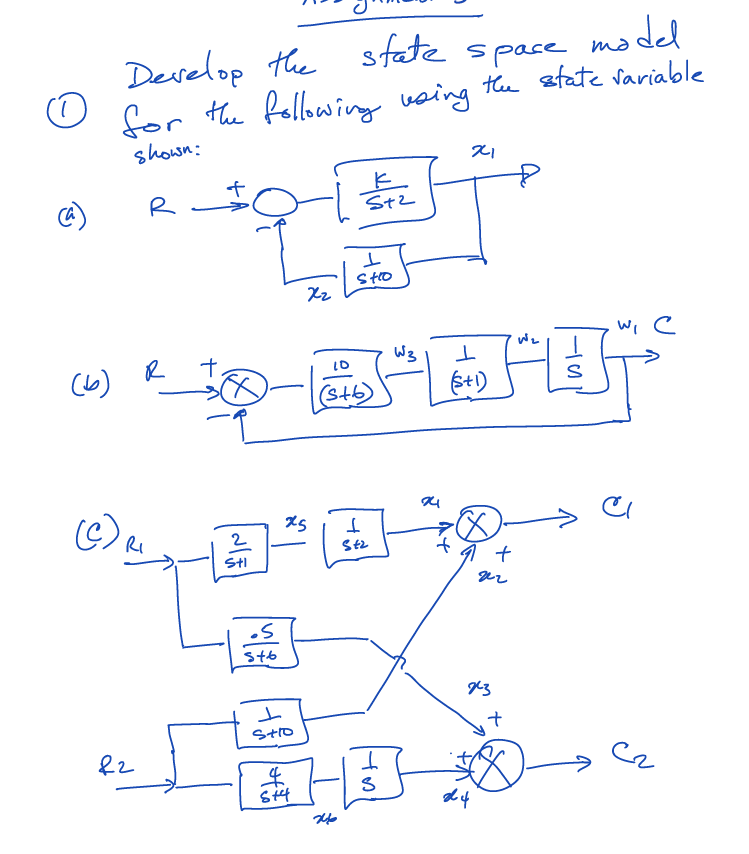 Develop the state space model
① for the following using the state variable
shown:
x1
(a) R + K
S+2
−
1
S+10
x2
(b) R + 10
(S+6) w3 1
(S+1) w2 1
S w1 C
−
(C) R1 2
S+1 x5 1
S+2 x1 + C1
+
x2
.5
S+6
x3
+
1
S+10
R2 4
S+4 x6 1
S + x4 C2